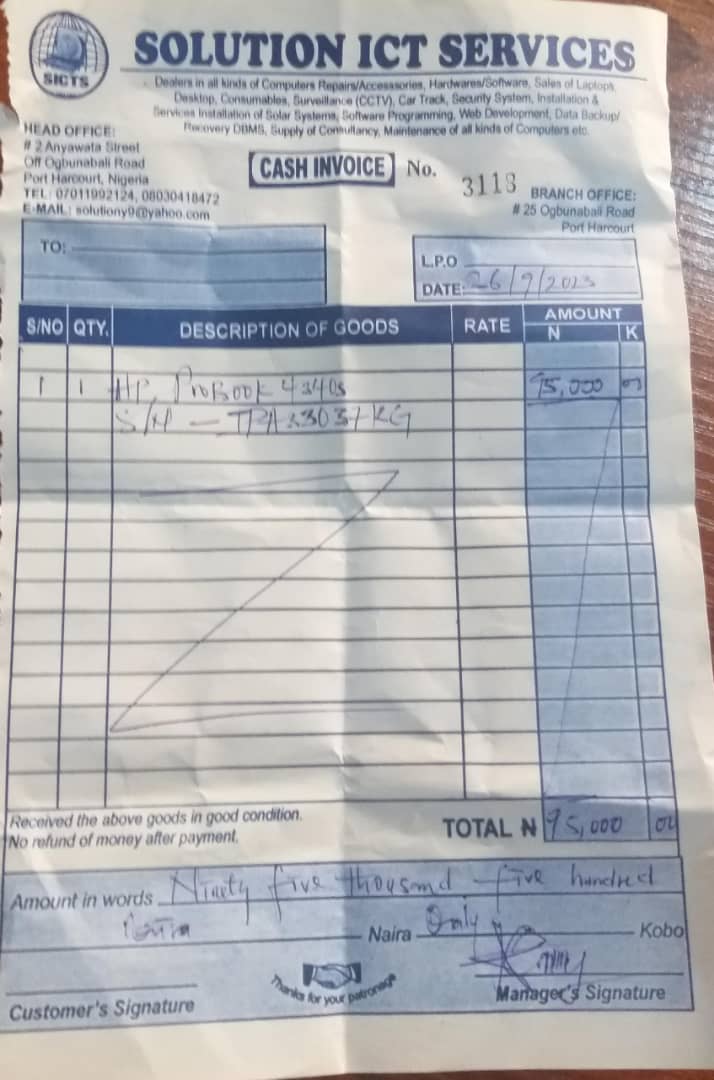 SICTS
SOLUTION ICT SERVICES
Dealers in all kinds of Computers Repairs/Accesssories, Hardwares/Software, Sales of Laptops,
Desktop, Consumables, Surveillance (CCTV), Car Track, Security System, Installation &
Services Installation of Solar Systems, Software Programming, Web Development, Data Backup/
Recovery DBMS, Supply of Consultancy, Maintenance of all kinds of Computers etc.
HEAD OFFICE:
# 2 Anyawata Street
Off Ogbunabali Road
Port Harcourt, Nigeria
TEL: 07011992124, 08030418472
E-MAIL: solutiony9@yahoo.com
CASH INVOICE No. 3118
BRANCH OFFICE:
# 25 Ogbunabali Road
Port Harcourt
TO:
L.P.O
DATE: 26/9/2023
S/NO QTY. DESCRIPTION OF GOODS RATE AMOUNT
N K
1 1 HP ProBook 4340s 95,000
S/N -
Received the above goods in good condition.
No refund of money after payment.
TOTAL N 95,000
Amount in words Ninety five thousand five hundred
Naira Only Kobo
Thanks for your patronage
Customer's Signature
Manager's Signature